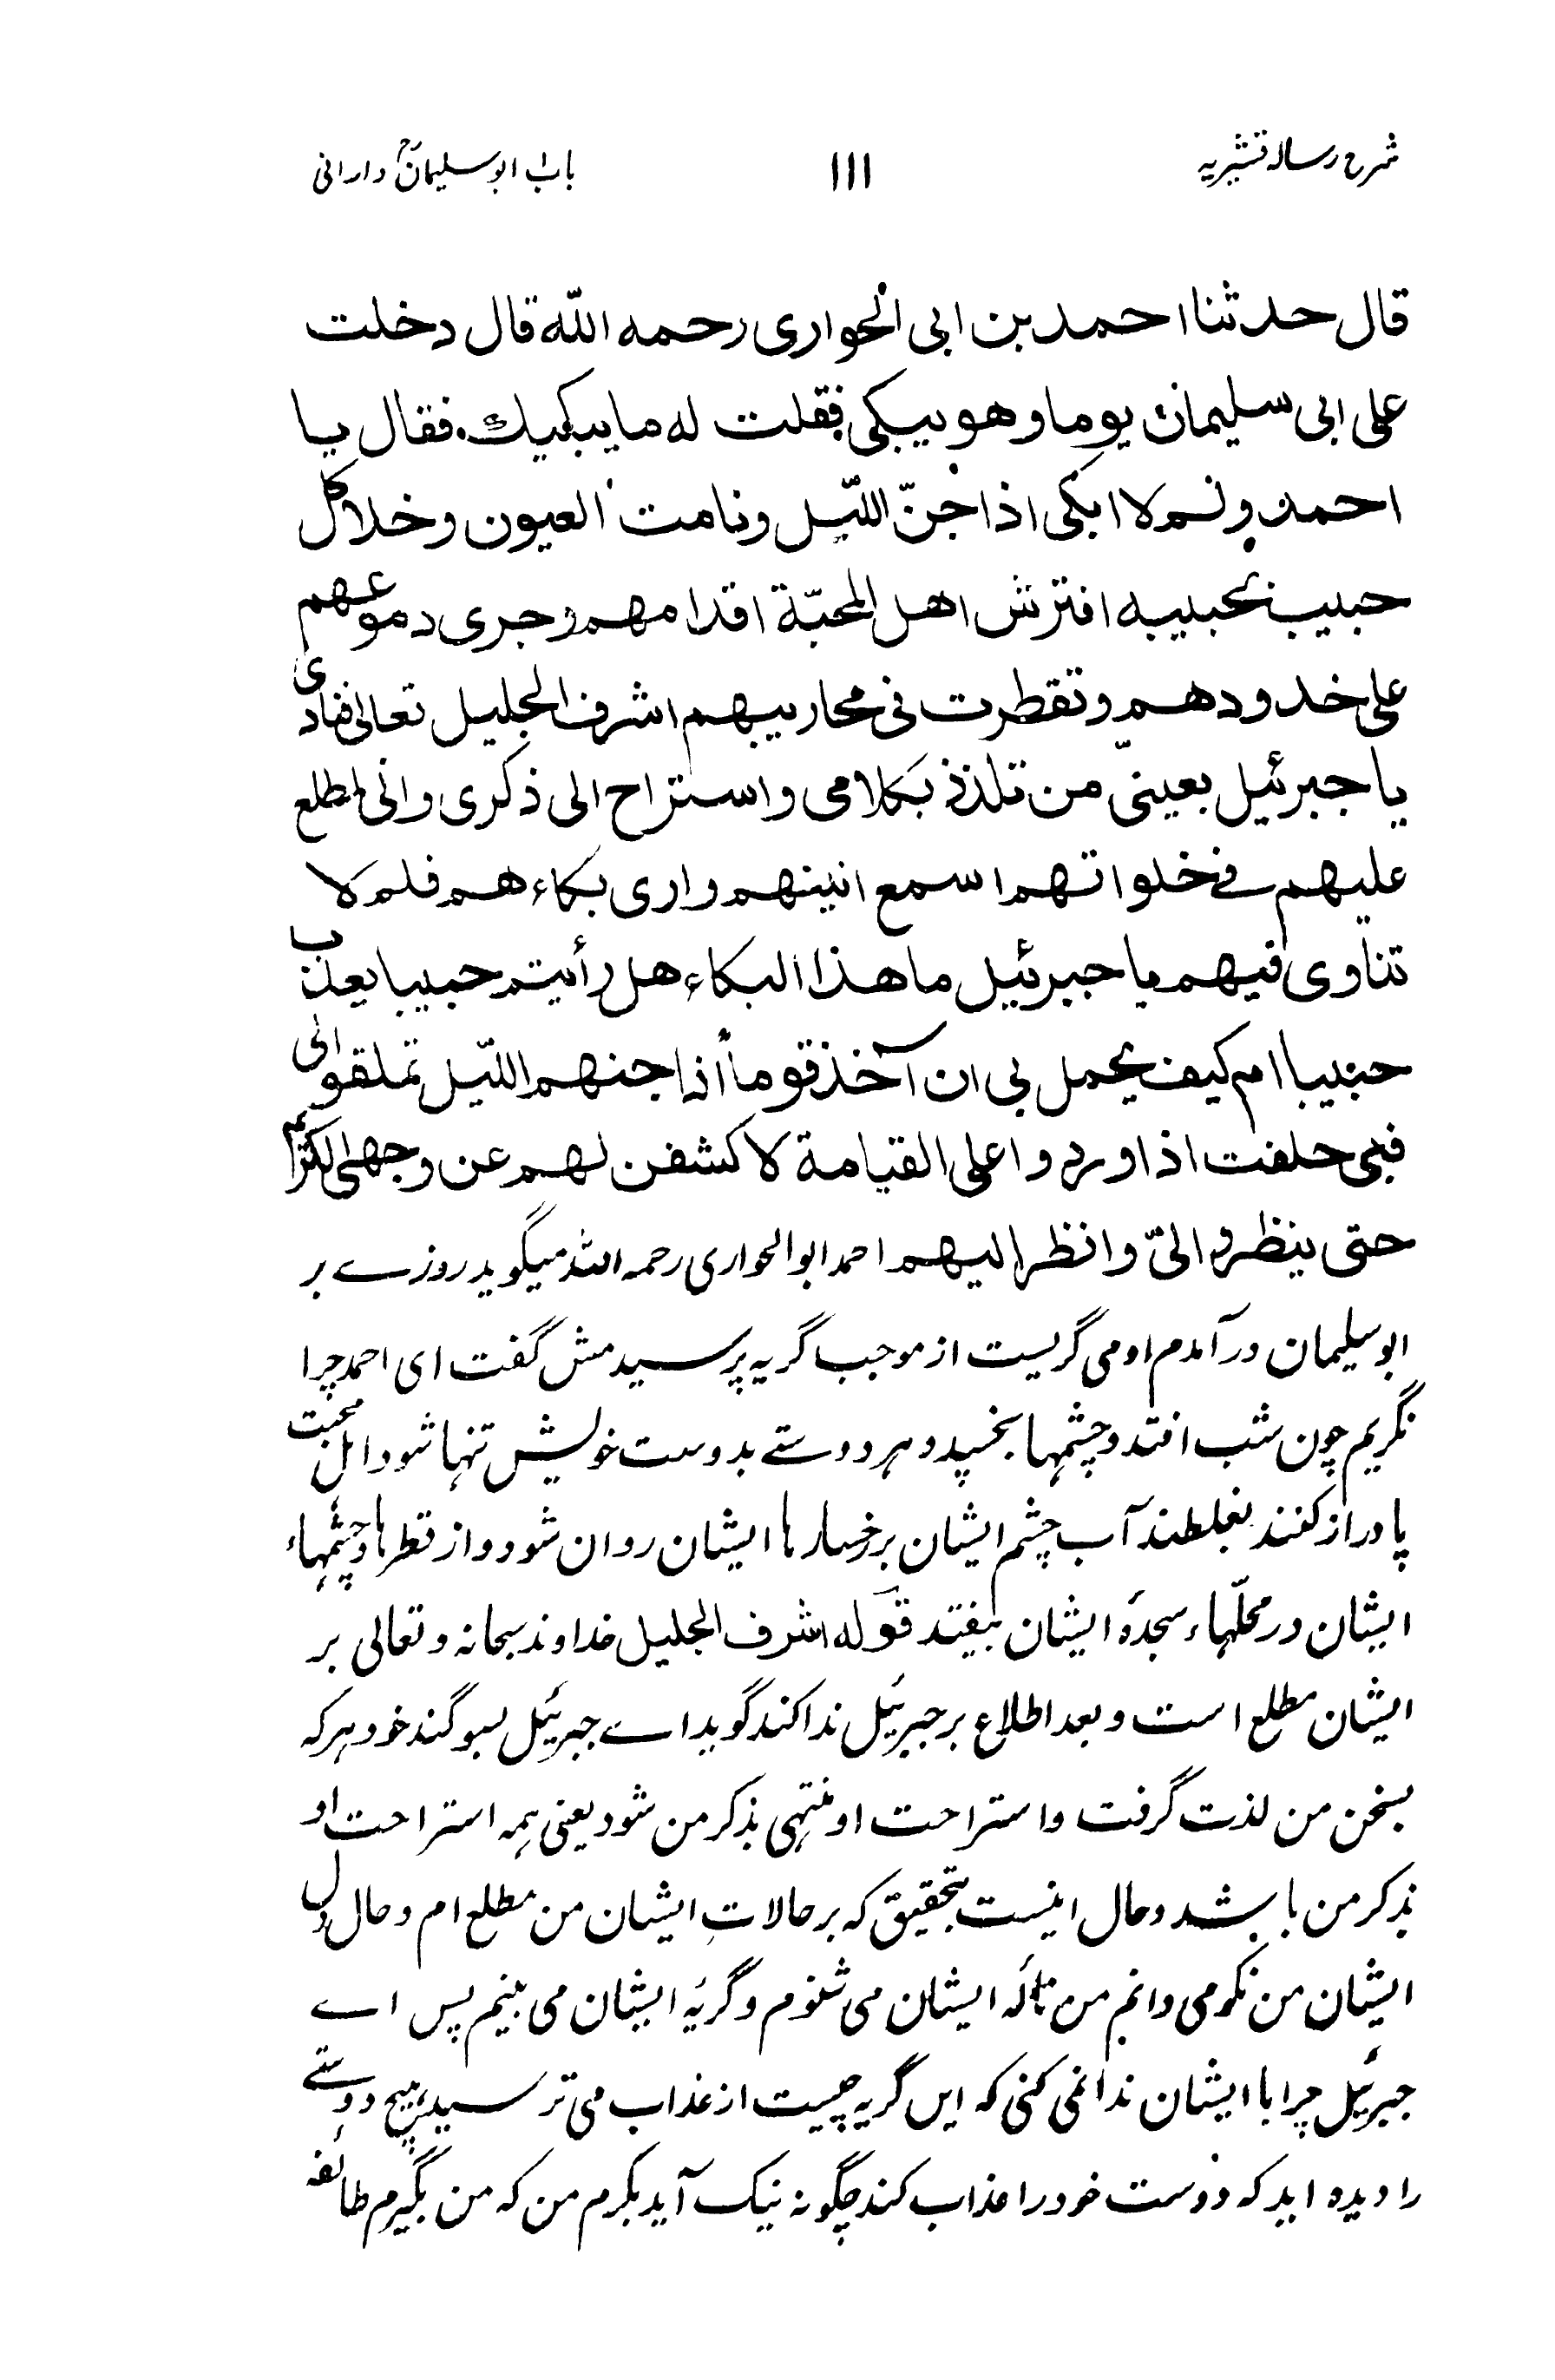 شرح رسالہ قشیریہ
۱۱۱
باب ابو سلیمانؒ دارانی
قال حدثنا احمد بن ابی الحواری رحمه اللّٰه قال دخلت
علی ابی سلیمان یوما وهو یبکی فقلت له ما یبکیك فقال یا
احمد ولم لا ابکی اذا جنّ اللّیل ونامت العیون وخلا کل
حبیب بحبیبه افترش اهل المحبّة اقدامهم وجری دموعهم
علی خدودهم وتقطرت فی محاریبهم اشرف الجلیل تعالی فنادی
یا جبرئیل بعینیّ من تلذذ بکلامی واستراح الی ذکری وانی لمطلع
علیهم فی خلواتهم اسمع انینهم واری بکاءهم فلم لا
تناوی فیهم یا جبرئیل ما هذا البکاء هل رأیتم حبیبا یعذب
حبیبا ام کیف یجمل بی ان آخذ قوماً اذا جنهم اللّیل تملقوا الی
فبی حلفت اذا وردوا علی القیامة لاکشفن لهم عن وجهی الکریم
حتی ینظروا الیّ وانظر الیهم احمد ابوالحواری رحمہ اللہ میگوید روزے بر
ابو سلیمان در آمدم او می گریست از موجب گریہ پرسیدمش گفت ای احمد چرا
نگریم چون شب افتد و چشمہا بخسپد و ہر دوستے بدوست خویش تنہا شود اہل محبت
پا دراز کنند بغلطند آب چشم ایشان بر رخسارہا ایشان روان شود و از قطرہا و چشمہاء
ایشان در محلّہاء سجدۂ ایشان بیفتد قولہ اشرف الجلیل خداوند سبحانہ و تعالی بر
ایشان مطلع است و بعد اطلاع بر جبرئیل ندا کند گوید اے جبرئیل بسوگند خود ہر کہ
بسخن من لذت گرفت و استراحت او منتہی بذکر من شود یعنی ہمہ استراحت او
بذکر من باشد و حال اینست بتحقیق کہ بر حالاتِ ایشان من مطلع ام و حال دل
ایشان من نکو می دانم من نالۂ ایشان می شنوم و گریۂ ایشان می بینم پس اے
جبرئیل چرا با ایشان ندا نمی کنی کہ ایں گریہ چیست از عذاب می ترسید ہیچ دوستے
را دیدہ اید کہ دوست خود را عذاب کند چگونہ نیک آید بکرم من کہ من بگیرم طائفہ